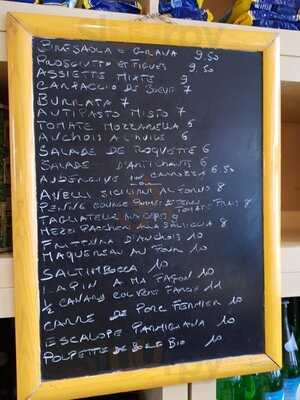 BRESAOLA e GRANA 9.50
PROSCIUTTO ET FIGUES 9.50
ASSIETTE MIXTE 9
CARPACCIO DE BOEUF 7
BURRATA 7
ANTIPASTO MISTO 7
TOMATE MOZZARELLA 6
ANCHOIS 6
SALADE DE ROQUETTE 6
SALADE D'ARTICHAUTS 6
AUBERGINE CARROZZA 6.50
ANELLI SICILIANI AL TONNO 8
PENNE COURGE 8
TAGLIATELLA 9
MEZZI PACCHERI ALLA 8
D'ANCHOIS 10
MAQUEREAU AU FOUR 10
SALTIMBOCCA 10
LAPIN A MA FAÇON 10
½ CANARD FARCE 11
CARRE DE PORC FERMIER 10
ESCALOPE PARMIGIANA 10
POLPETTE DE BIO 10